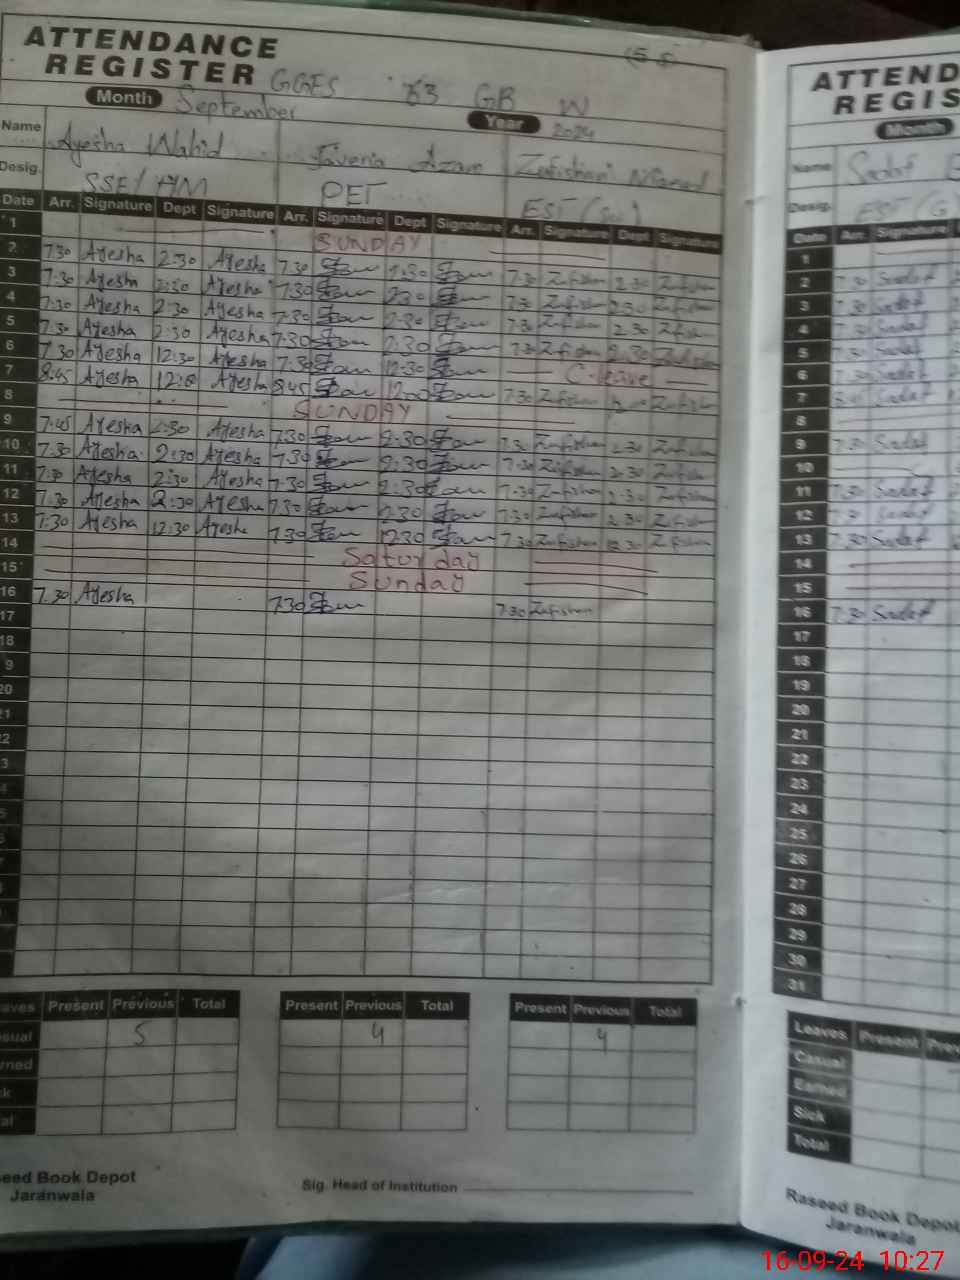 ATTENDANCE
REGISTER GGES 83 GB W
Month September Year 2024
Name Ayesha Wahid Javeria Azam Zafishan
Desig. SSE/HM PET EST
Date Arr. Signature Dept Signature Arr. Signature Dept Signature Arr. Signature Dept Signature
1 SUNDAY
2 7:30 Ayesha 2:30 Ayesha 7:30 2:30 7:30 Zafishan 2:30 Zafishan
3 7:30 Ayesha 2:30 Ayesha 7:30 2:30 7:30 Zafishan 2:30 Zafishan
4 7:30 Ayesha 2:30 Ayesha 7:30 2:30 7:30 Zafishan 2:30 Zafishan
5 7:30 Ayesha 2:30 Ayesha 7:30 2:30 7:30 Zafishan 2:30 Zafishan
6 7:30 Ayesha 12:30 Ayesha 7:30 12:30 C-leave
7 8:45 Ayesha 12:00 Ayesha 8:45 12:00 7:30 Zafishan Zafishan
8 SUNDAY
9 7:45 Ayesha 2:30 Ayesha 7:30 2:30 7:30 Zafishan 2:30 Zafishan
10 7:30 Ayesha 2:30 Ayesha 7:30 2:30 7:30 Zafishan 2:30 Zafishan
11 7:30 Ayesha 2:30 Ayesha 7:30 2:30 7:30 Zafishan 2:30 Zafishan
12 7:30 Ayesha 2:30 Ayesha 7:30 2:30 7:30 Zafishan 2:30 Zafishan
13 7:30 Ayesha 12:30 Ayesha 7:30 12:30 7:30 Zafishan 12:30 Zafishan
14 Saturday
15 Sunday
16 7:30 Ayesha 7:30 7:30 Zafishan
17
18
9
20
21
2
3
Present Previous Total Present Previous Total Present Previous Total
5 4 4
Book Depot
Jaranwala
Sig. Head of Institution
ATTEND
REGIS
Month
Name Sadaf
Desig. EST (G)
Date Arr. Signature
1
2 7:30 Sadaf
3 7:30 Sadaf
4 7:30 Sadaf
5 7:30 Sadaf
6 7:30 Sadaf
7 8:45 Sadaf
8
9 7:30 Sadaf
10
11 7:30 Sadaf
12 7:30 Sadaf
13 7:30 Sadaf
14
15
16 7:30 Sadaf
17
18
19
20
21
22
23
24
25
26
27
28
29
30
31
Leaves Present Prev
Casual
Earned
Sick
Total
Raseed Book Depot
Jaranwala
16-09-24 10:27